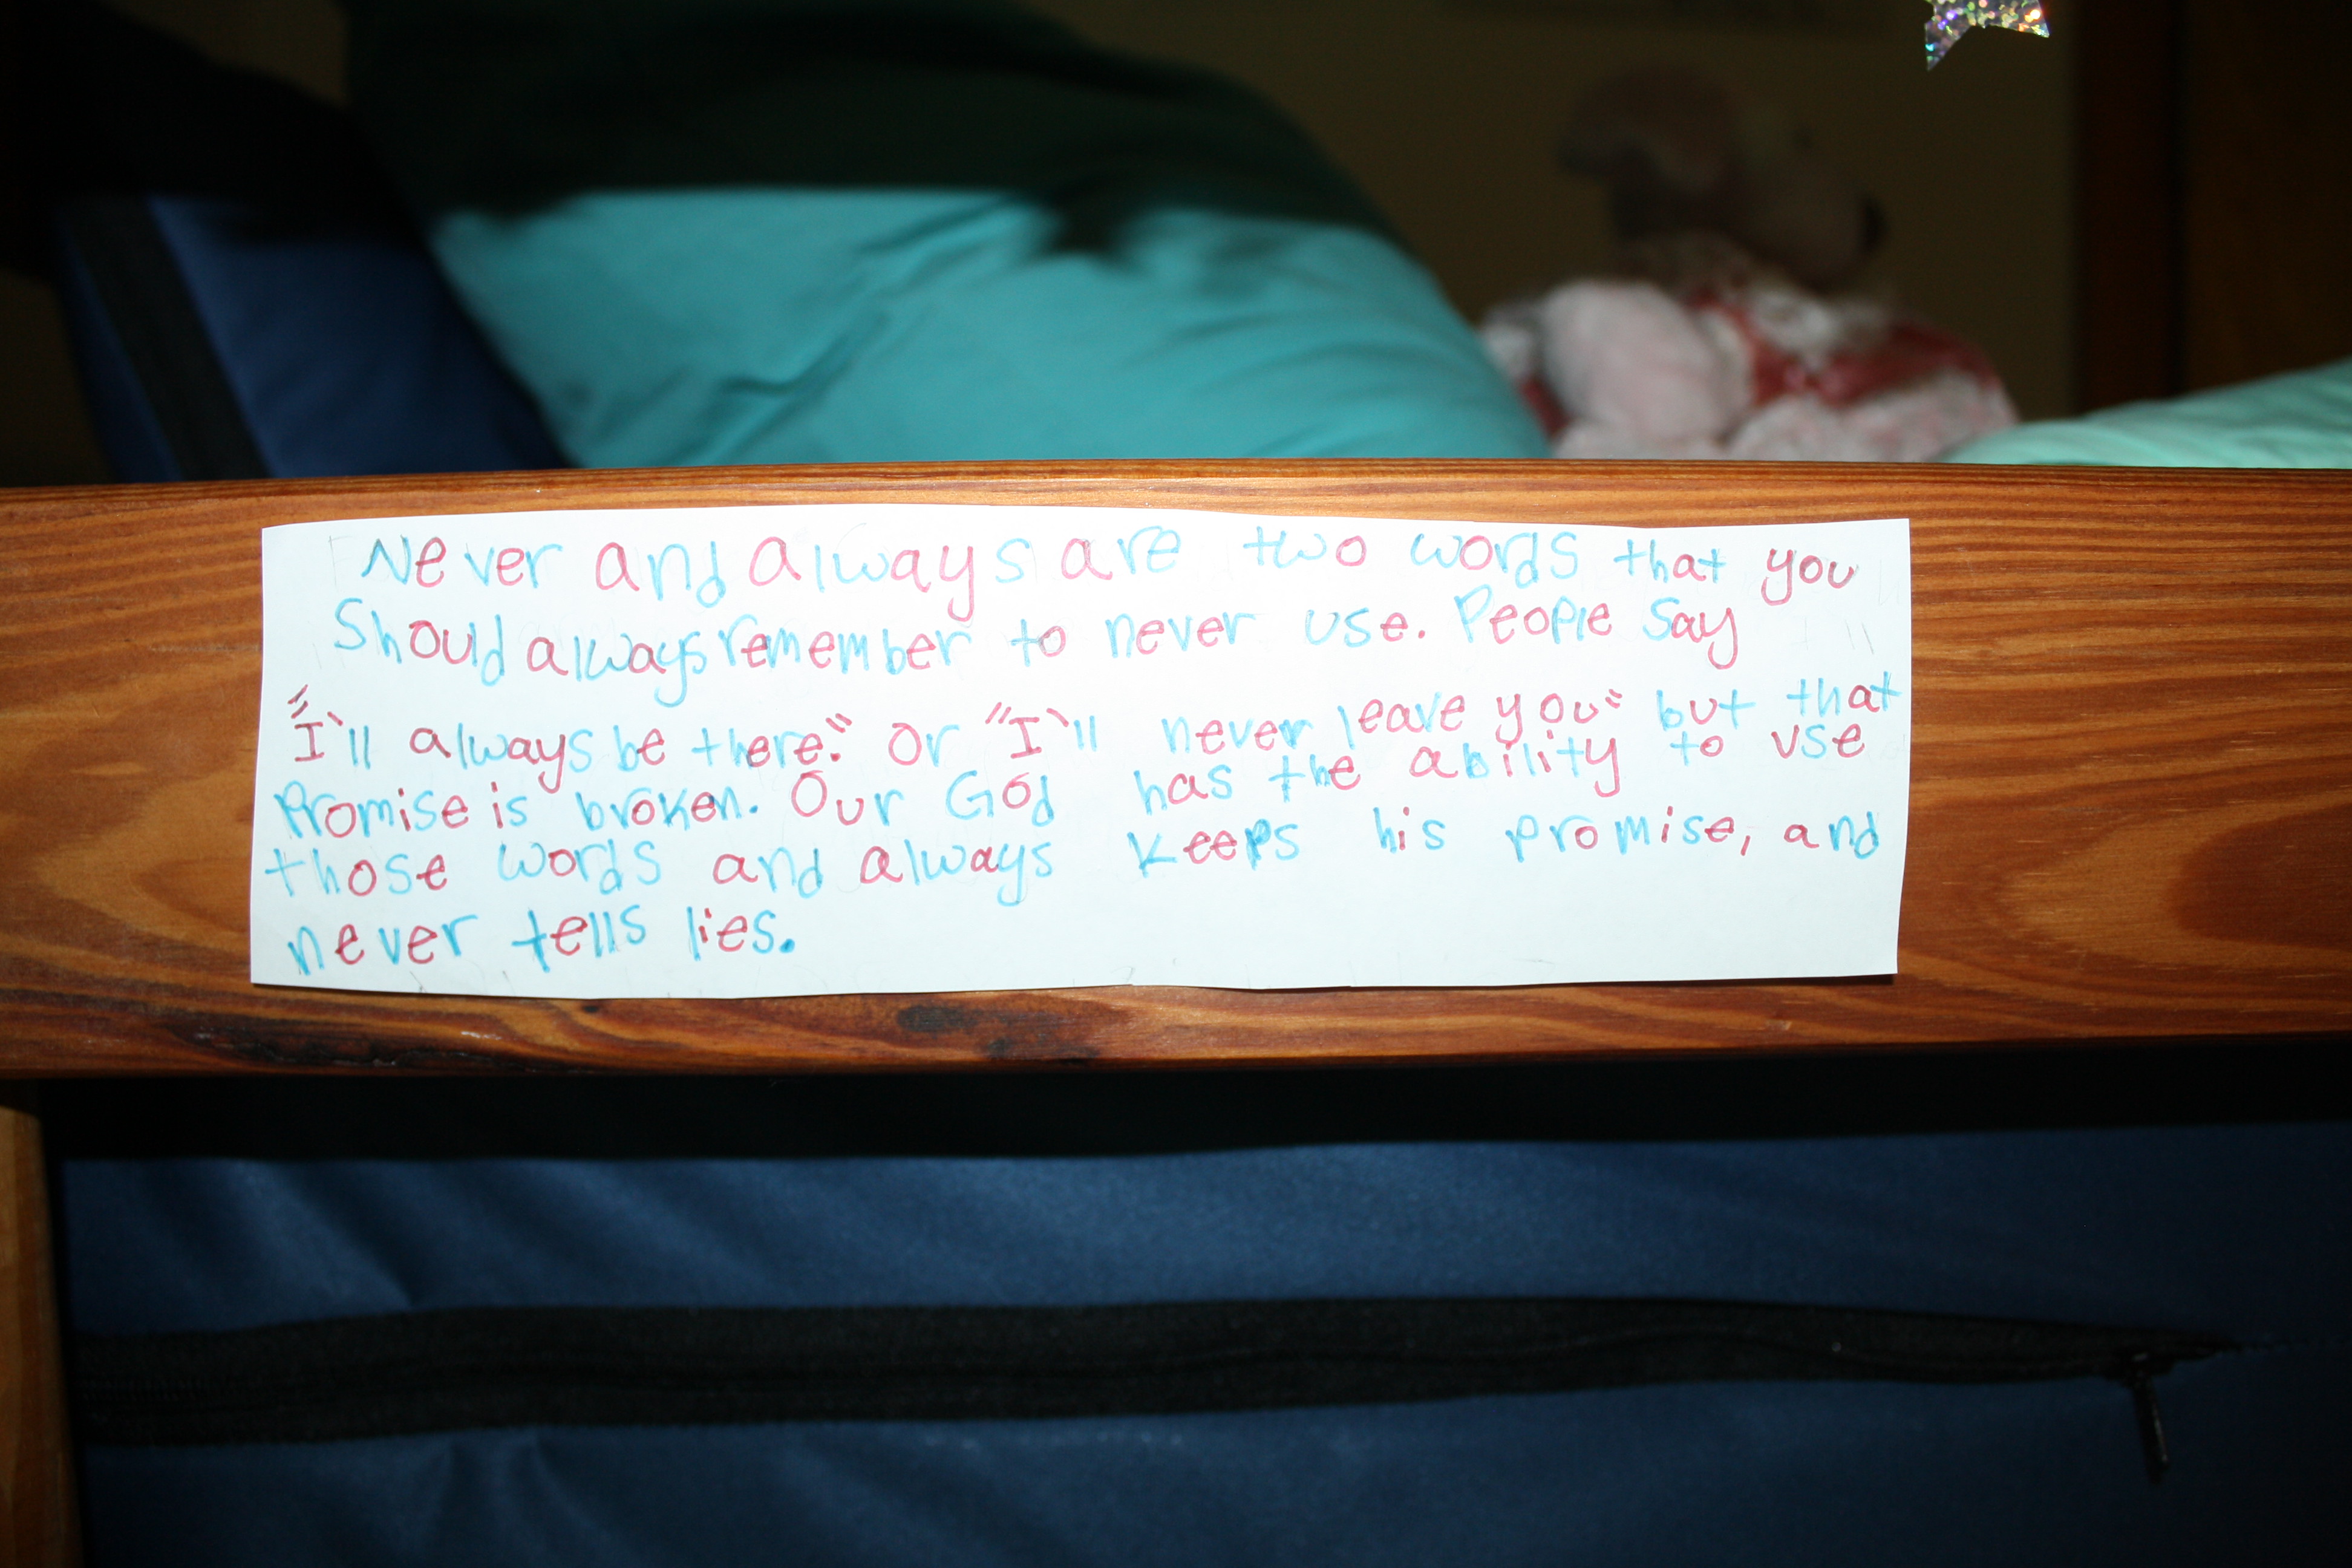 Never and always are two words that you
Should always remember to never use. People say
"I'll always be there." or "I'll never leave you" but that
Promise is broken. Our God has the ability to use
those words and always keeps his promise, and
never tells lies.